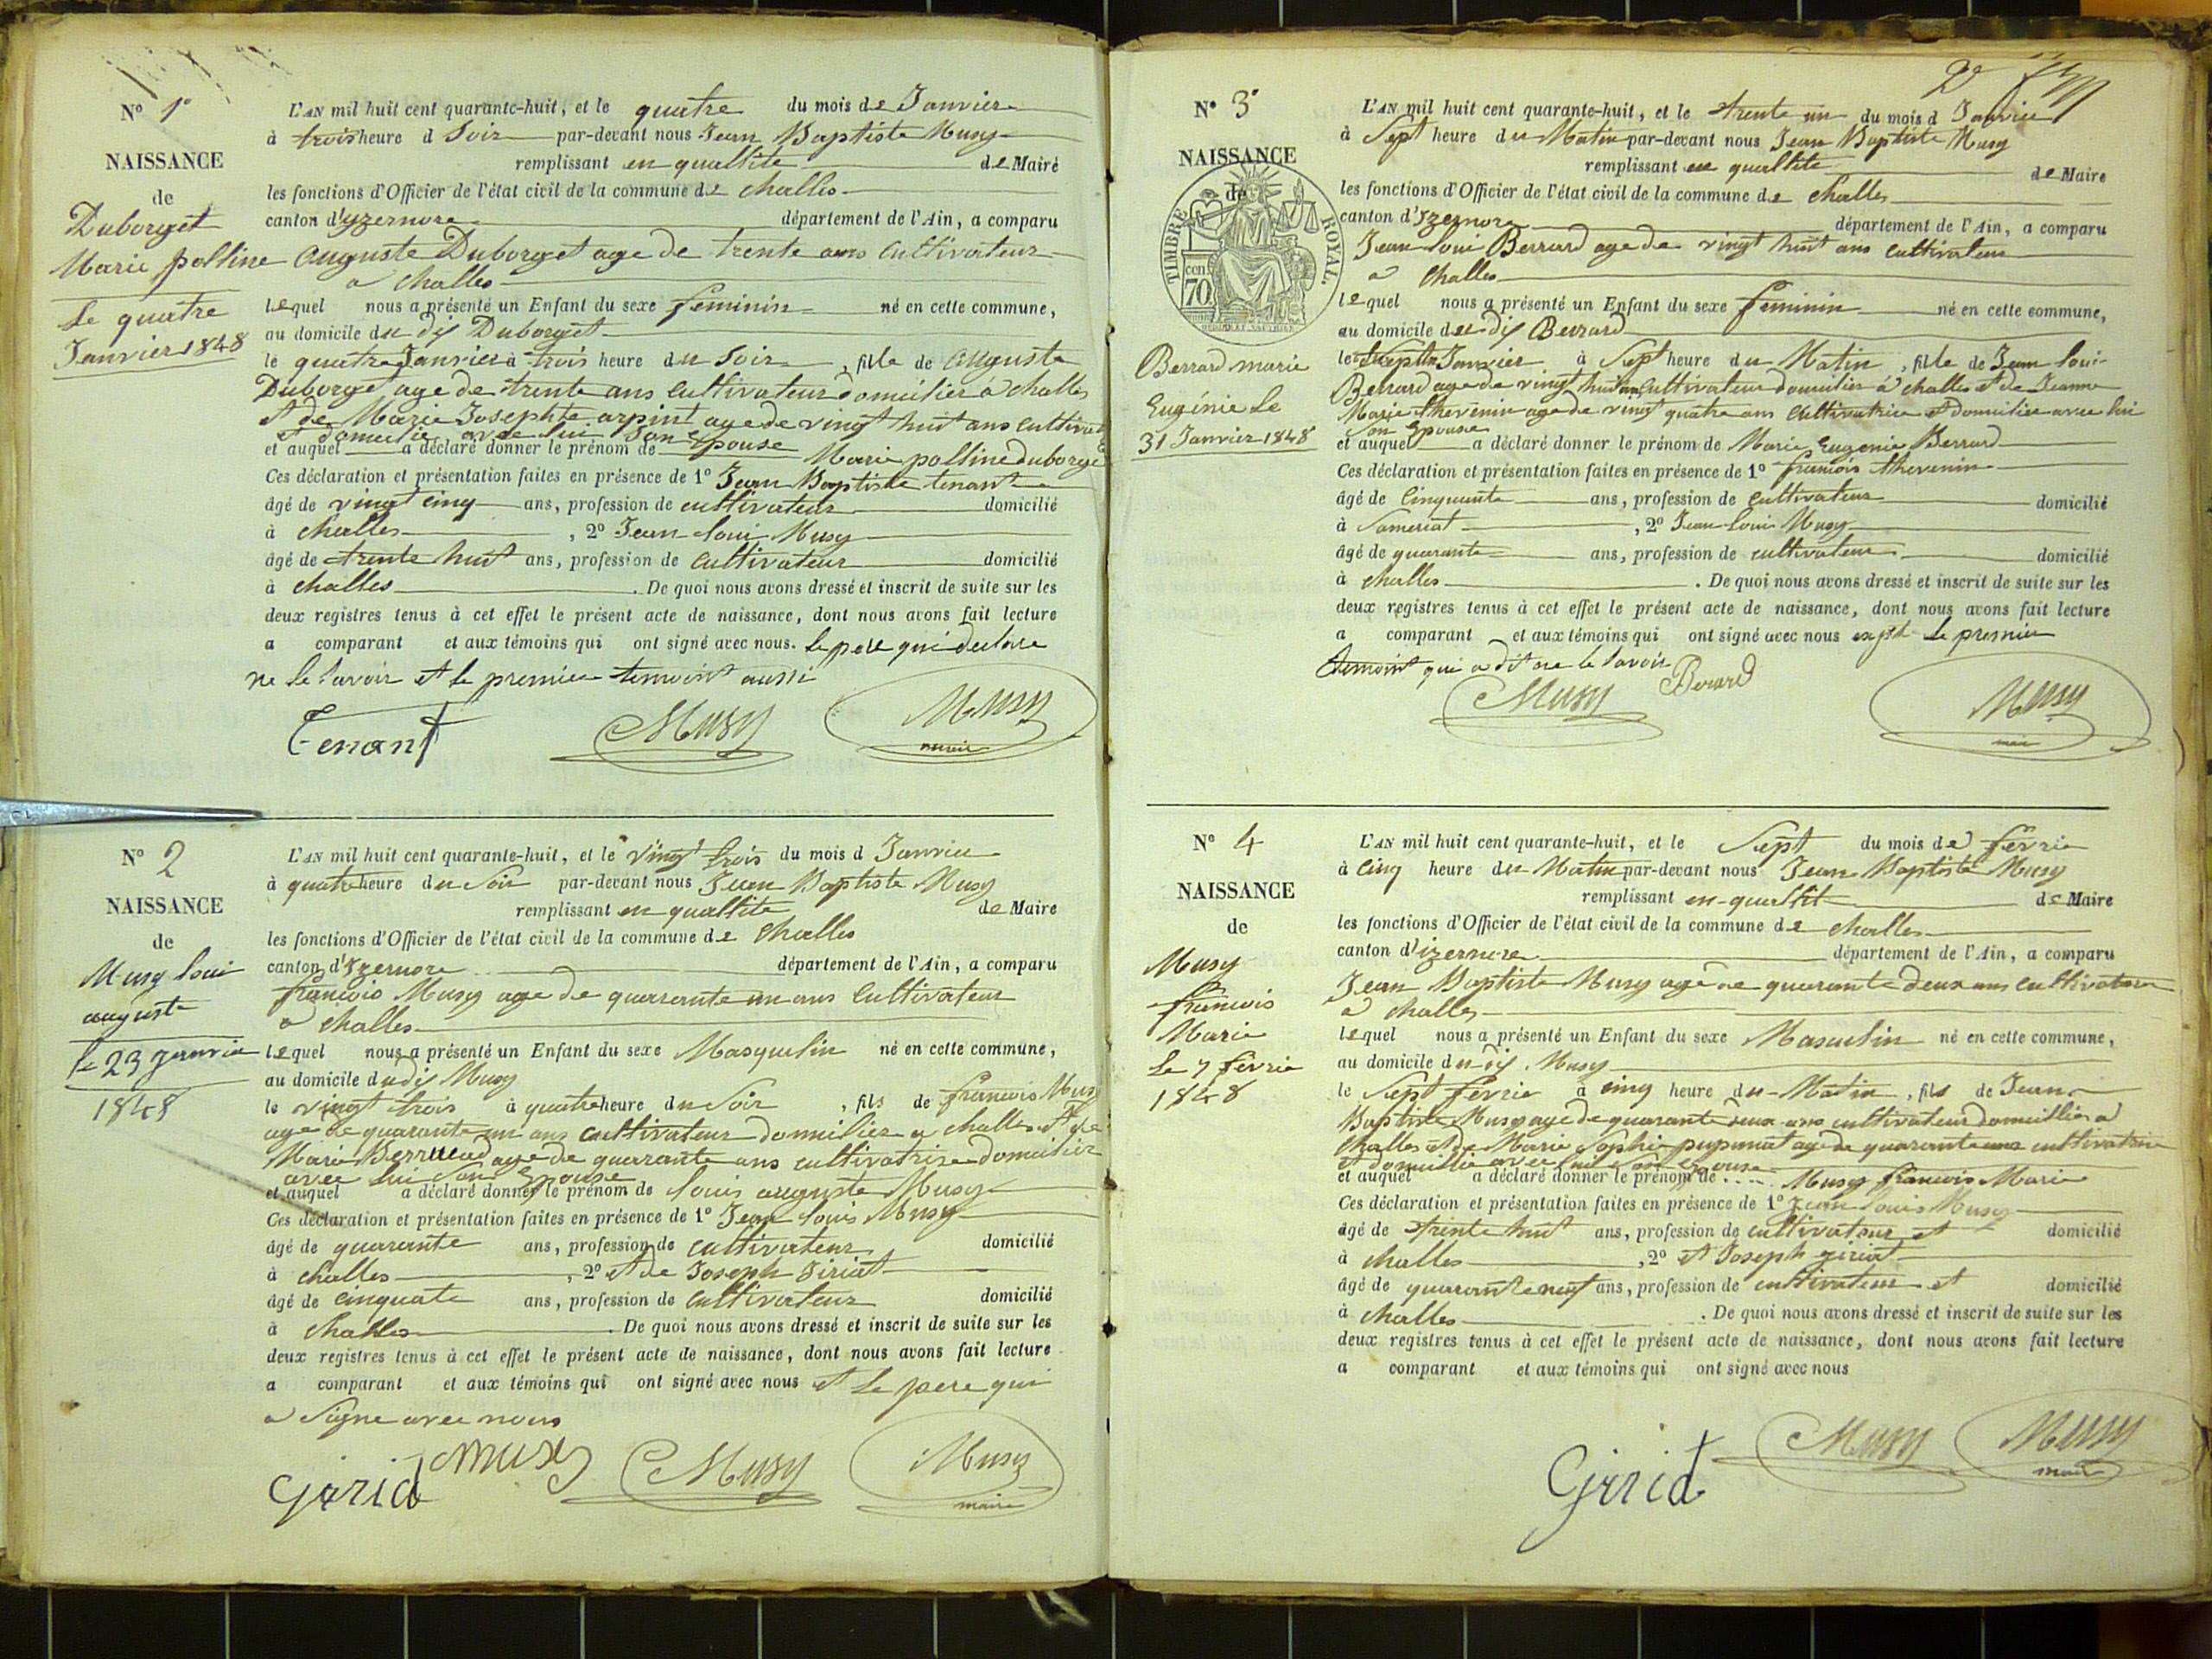 N° 1°
NAISSANCE
de
Duborget
Marie polline
Le quatre
Janvier 1848
L'AN mil huit cent quarante-huit, et le quatre du mois de Janvier
à trois heure d Soir par-devant nous Jean Baptiste Musy
remplissant en quallite de Maire
les fonctions d'Officier de l'état civil de la commune de challes
canton d'yzernore département de l'Ain, a comparu
auguste Duborget age de trente ans Cultivateur
a challes
lequel nous a présenté un Enfant du sexe feminin né en cette commune,
au domicile du dij Duborget
le quatre Janvier à trois heure du Soir, fille de auguste
Duborget age de trente ans cultivateur domicilier à challes
et de Marie Josephte arpint age de vingt huit ans cultivat
et domicilie avec lui Son Epouse
et auquel a déclaré donner le prénom de Marie polline duborge
Ces déclaration et présentation faites en présence de 1° Jean Baptiste tenant
âgé de vingt cinq ans, profession de cultivateur domicilié
à challes, 2° Jean loui Musy
âgé de trente huit ans, profession de cultivateur domicilié
à challes. De quoi nous avons dressé et inscrit de suite sur les
deux registres tenus à cet effet le présent acte de naissance, dont nous avons fait lecture
a comparant et aux témoins qui ont signé avec nous. Le pere qui declare
ne le Savoir et le premier temoint aussi
Tenant Musy Musy
maire
N° 2
NAISSANCE
de
Musy loui
auguste
le 23 Janvier
1848
L'AN mil huit cent quarante-huit, et le vingt trois du mois d Janvier
à quatre heure du Soir par-devant nous Jean Baptiste Musy
remplissant en quallite de Maire
les fonctions d'Officier de l'état civil de la commune de challes
canton d'Izernore département de l'Ain, a comparu
françois Musy age de quarante un ans Cultivateur
a challes
lequel nous a présenté un Enfant du sexe Masquelin né en cette commune,
au domicile du dij Musy
le vingt trois à quatre heure du Soir, fils de françois Musy
age de quarante un ans cultivateur domicilier a challes et de
Marie age de quarante ans cultivatrise domicilier
avec lui Son Epouse
et auquel a déclaré donner le prénom de louis auguste Musy
Ces déclaration et présentation faites en présence de 1° Jean louis Musy
âgé de quarante ans, profession de cultivateur domicilié
à challes, 2° et de Joseph Jiriat
âgé de cinquate ans, profession de Cultivateur domicilié
à challes. De quoi nous avons dressé et inscrit de suite sur les
deux registres tenus à cet effet le présent acte de naissance, dont nous avons fait lecture
a comparant et aux témoins qui ont signé avec nous et le pere qui
a Signe avec nous
Girid musy Musy Musy
maire
N° 3°
NAISSANCE
de
TIMBRE ROYAL
70 cen
Berrard marie
Eugénie Le
31 Janvier 1848
L'AN mil huit cent quarante-huit, et le trente un du mois d Janvier
à Sept heure du Matin par-devant nous Jean Baptiste Musy
remplissant en quallite de Maire
les fonctions d'Officier de l'état civil de la commune de challes
canton d'Izernore département de l'Ain, a comparu
Jean loui Berrard age de vingt huit ans cultivateur
a challes
lequel nous a présenté un Enfant du sexe feminin né en cette commune,
au domicile du dij Berrard
le Janvier à Sept heure du Matin, fille de Jean loui
Berrard age de vingt huit an Cultivateur domicilier a challes et de Jeanne
Marie thevenin age de vingt quatre ans Cultivatrice et domicilier avec lui
Son Epouse
et auquel a déclaré donner le prénom de Marie Eugenie Berrard
Ces déclaration et présentation faites en présence de 1° françois thevenin
âgé de Cinquante ans, profession de cultivateur domicilié
à Sameriat, 2° Jean louis Musy
âgé de quarante ans, profession de cultivateur domicilié
à challes. De quoi nous avons dressé et inscrit de suite sur les
deux registres tenus à cet effet le présent acte de naissance, dont nous avons fait lecture
a comparant et aux témoins qui ont signé avec nous le premier
temoint qui a dit ne le Savoir
Musy Berard Musy
maire
N° 4
NAISSANCE
de
Musy
francois
Marie
Le 7 fevrie
1848
L'AN mil huit cent quarante-huit, et le Sept du mois de fevrie
à Cinq heure du Matin par-devant nous Jean Baptiste Musy
remplissant en quallit de Maire
les fonctions d'Officier de l'état civil de la commune de challes
canton d'izernore département de l'Ain, a comparu
Jean Baptiste Musy age de quarante deux ans cultivateur
a challes
lequel nous a présenté un Enfant du sexe Masculin né en cette commune,
au domicile du dij Musy
le Sept fevrie à cinq heure du Matin, fils de Jean
Baptiste Musy age de quarante deux ans cultivateur domicillier a
Challes et de Marie Sophie age de quarante cultivatrice
et domicillie avec lui Son Epouse
et auquel a déclaré donner le prénom de .... Musy francois Marie
Ces déclaration et présentation faites en présence de 1° Jean louis Musy
âgé de trente huit ans, profession de cultivateur et domicilié
à challes, 2° et Joseph giriat
âgé de quarante neuf ans, profession de cultivateur et domicilié
à challes. De quoi nous avons dressé et inscrit de suite sur les
deux registres tenus à cet effet le présent acte de naissance, dont nous avons fait lecture
a comparant et aux témoins qui ont signé avec nous
Girid Musy Musy
maire